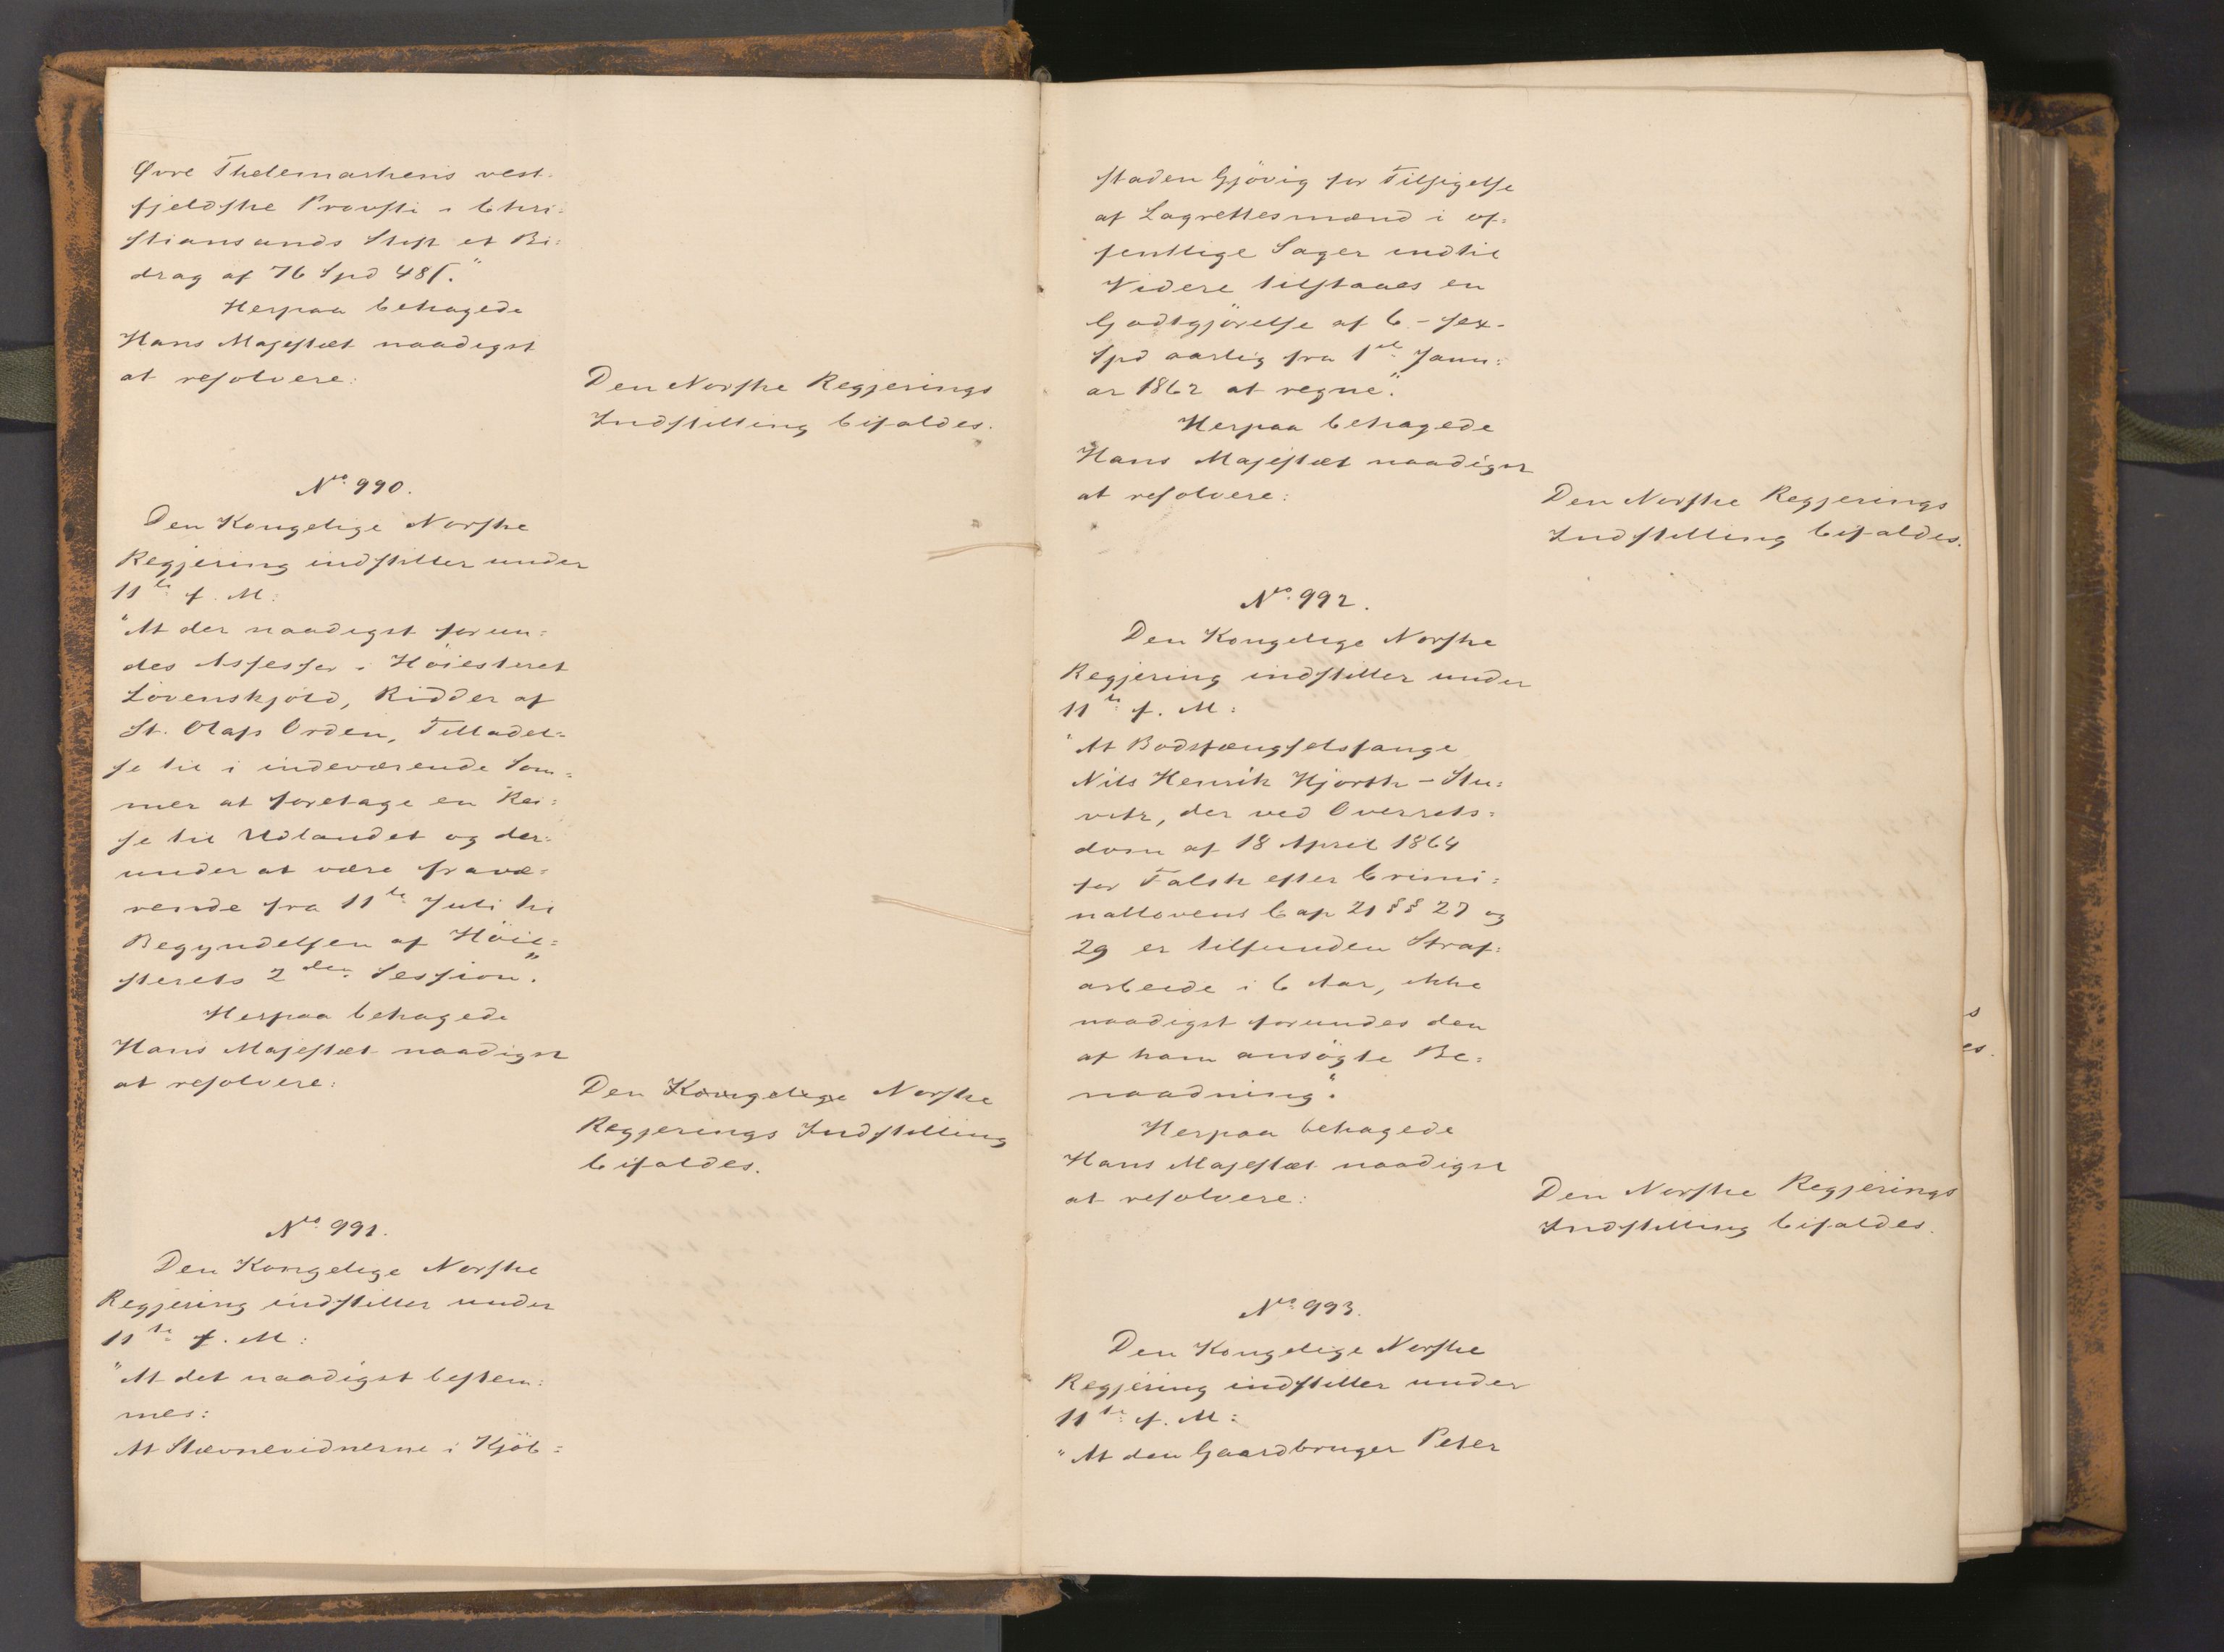 Øvre Thelemarkens vest-
fjeldske Provsti i Chri-
stiansands Stift et Bi-
drag af 76 Spd 48 ſ."
Herpaa behagede
Hans Majestæt naadigst
at resolvere:
Den Norske Regjerings
Indstilling bifaldes.
No. 990.
Den Kongelige Norske
Regjering indstiller under
11te f. M:
"At der naadigst forun-
des Assessor i Høiesteret
Løvenskjold, Ridder af
St. Olafs Orden, Tilladel-
se til i indeværende Som-
mer at foretage en Rei-
se til Udlandet og der-
under at være fravæ-
rende fra 11te Juli til
Begyndelsen af Høie-
sterets 2den Session."
Herpaa behagede
Hans Majestæt naadigst
at resolvere:
Den Kongelige Norske
Regjerings Indstilling
bifaldes.
No. 991.
Den Kongelige Norske
Regjering indstiller under
11te f. M:
"At det naadigst bestem-
mes:
At Stævnevidnerne i Kjøb-
staden Gjøvig for Tilsigelse
af Lagrettesmænd i of-
fentlige Sager indtil
Videre tilstaaes en
Godtgjørelse af 6 - sex -
Spd aarlig fra 1ste Janu-
ar 1862 at regne."
Herpaa behagede
Hans Majestæt naadigst
at resolvere:
Den Norske Regjerings
Indstilling bifaldes.
No. 992.
Den Kongelige Norske
Regjering indstiller under
11te f. M:
"At Bodsfængselsfange
Nils Henrik Hjorth - Stu-
vitz, der ved Overrets-
dom af 18 April 1864
for Falsk efter Crimi-
nallovens Cap 21 §§ 27 og
29 er tilfunden Straf-
arbeide i 6 Aar, ikke
naadigst forundes den
af ham ansøgte Be-
naadning."
Herpaa behagede
Hans Majestæt naadigst
at resolvere:
Den Norske Regjerings
Indstilling bifaldes.
No. 993.
Den Kongelige Norske
Regjering indstiller under
11te f. M:
"At den Gaardbruger Peter